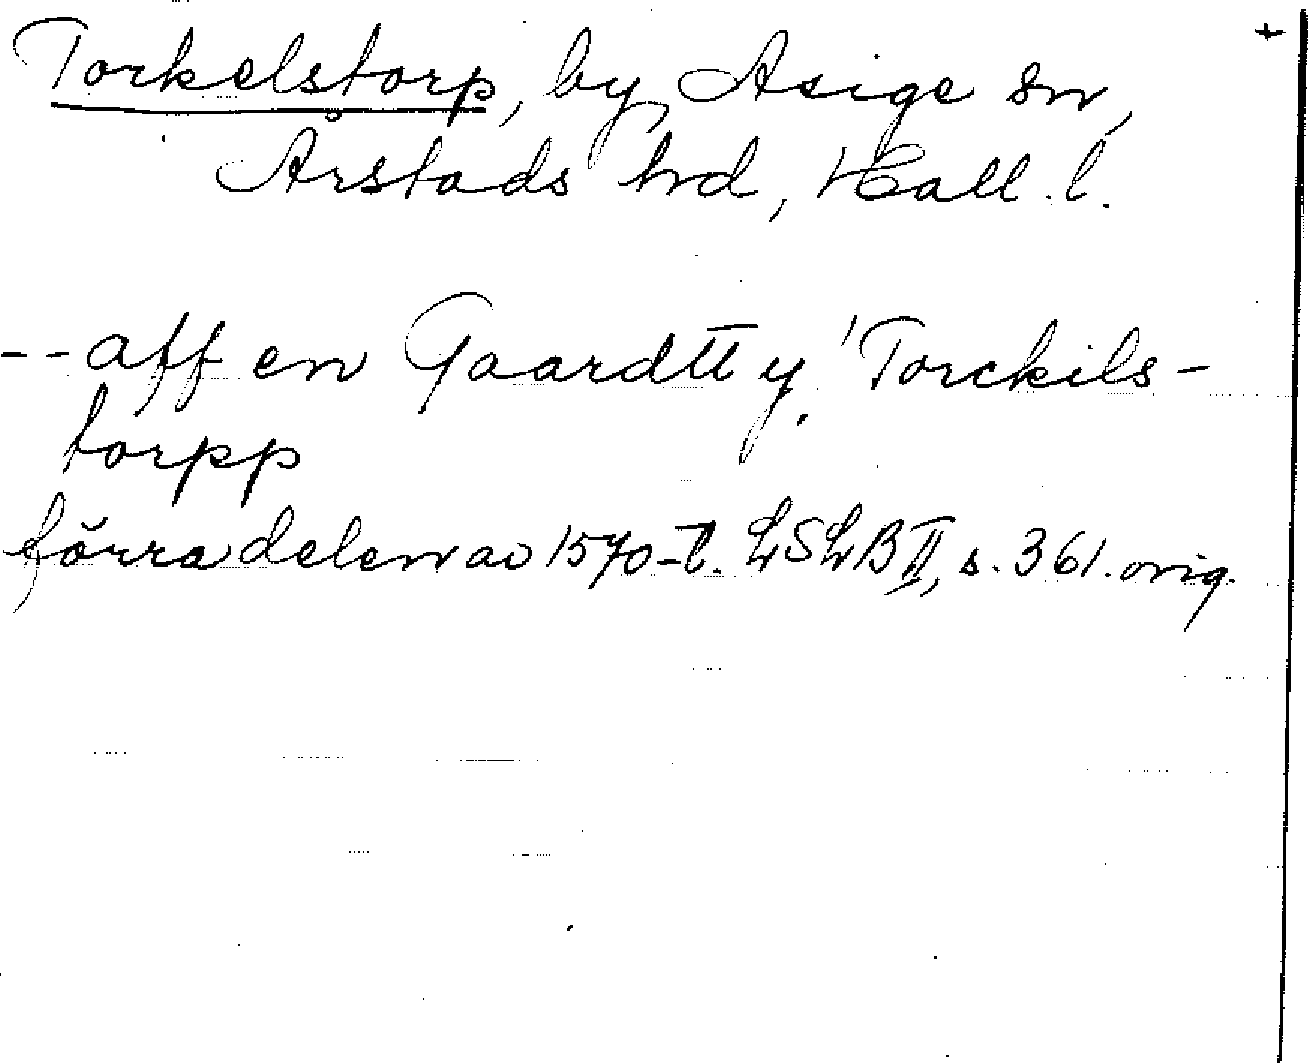 Torkelstorp, by, Asige sn, +
Årstads hd, Hall. l.
-- aff en Gaardtt y ! Torckils-
torpp
förra delen av 1570-t. LSLB II, s. 361. orig.